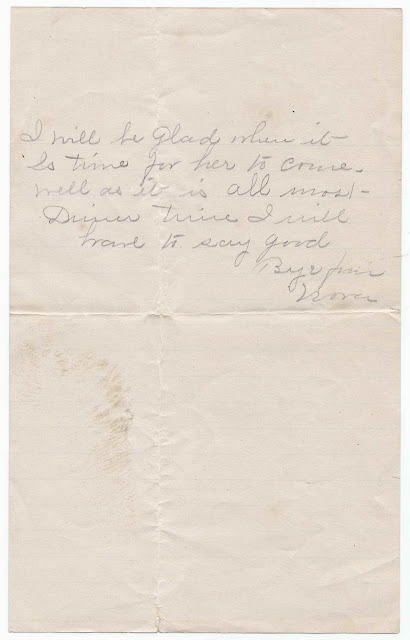 I will be Glad when it
Is time for her to come.
well as it is all most
Dinner time I will
have to say good
Bye from
Nora